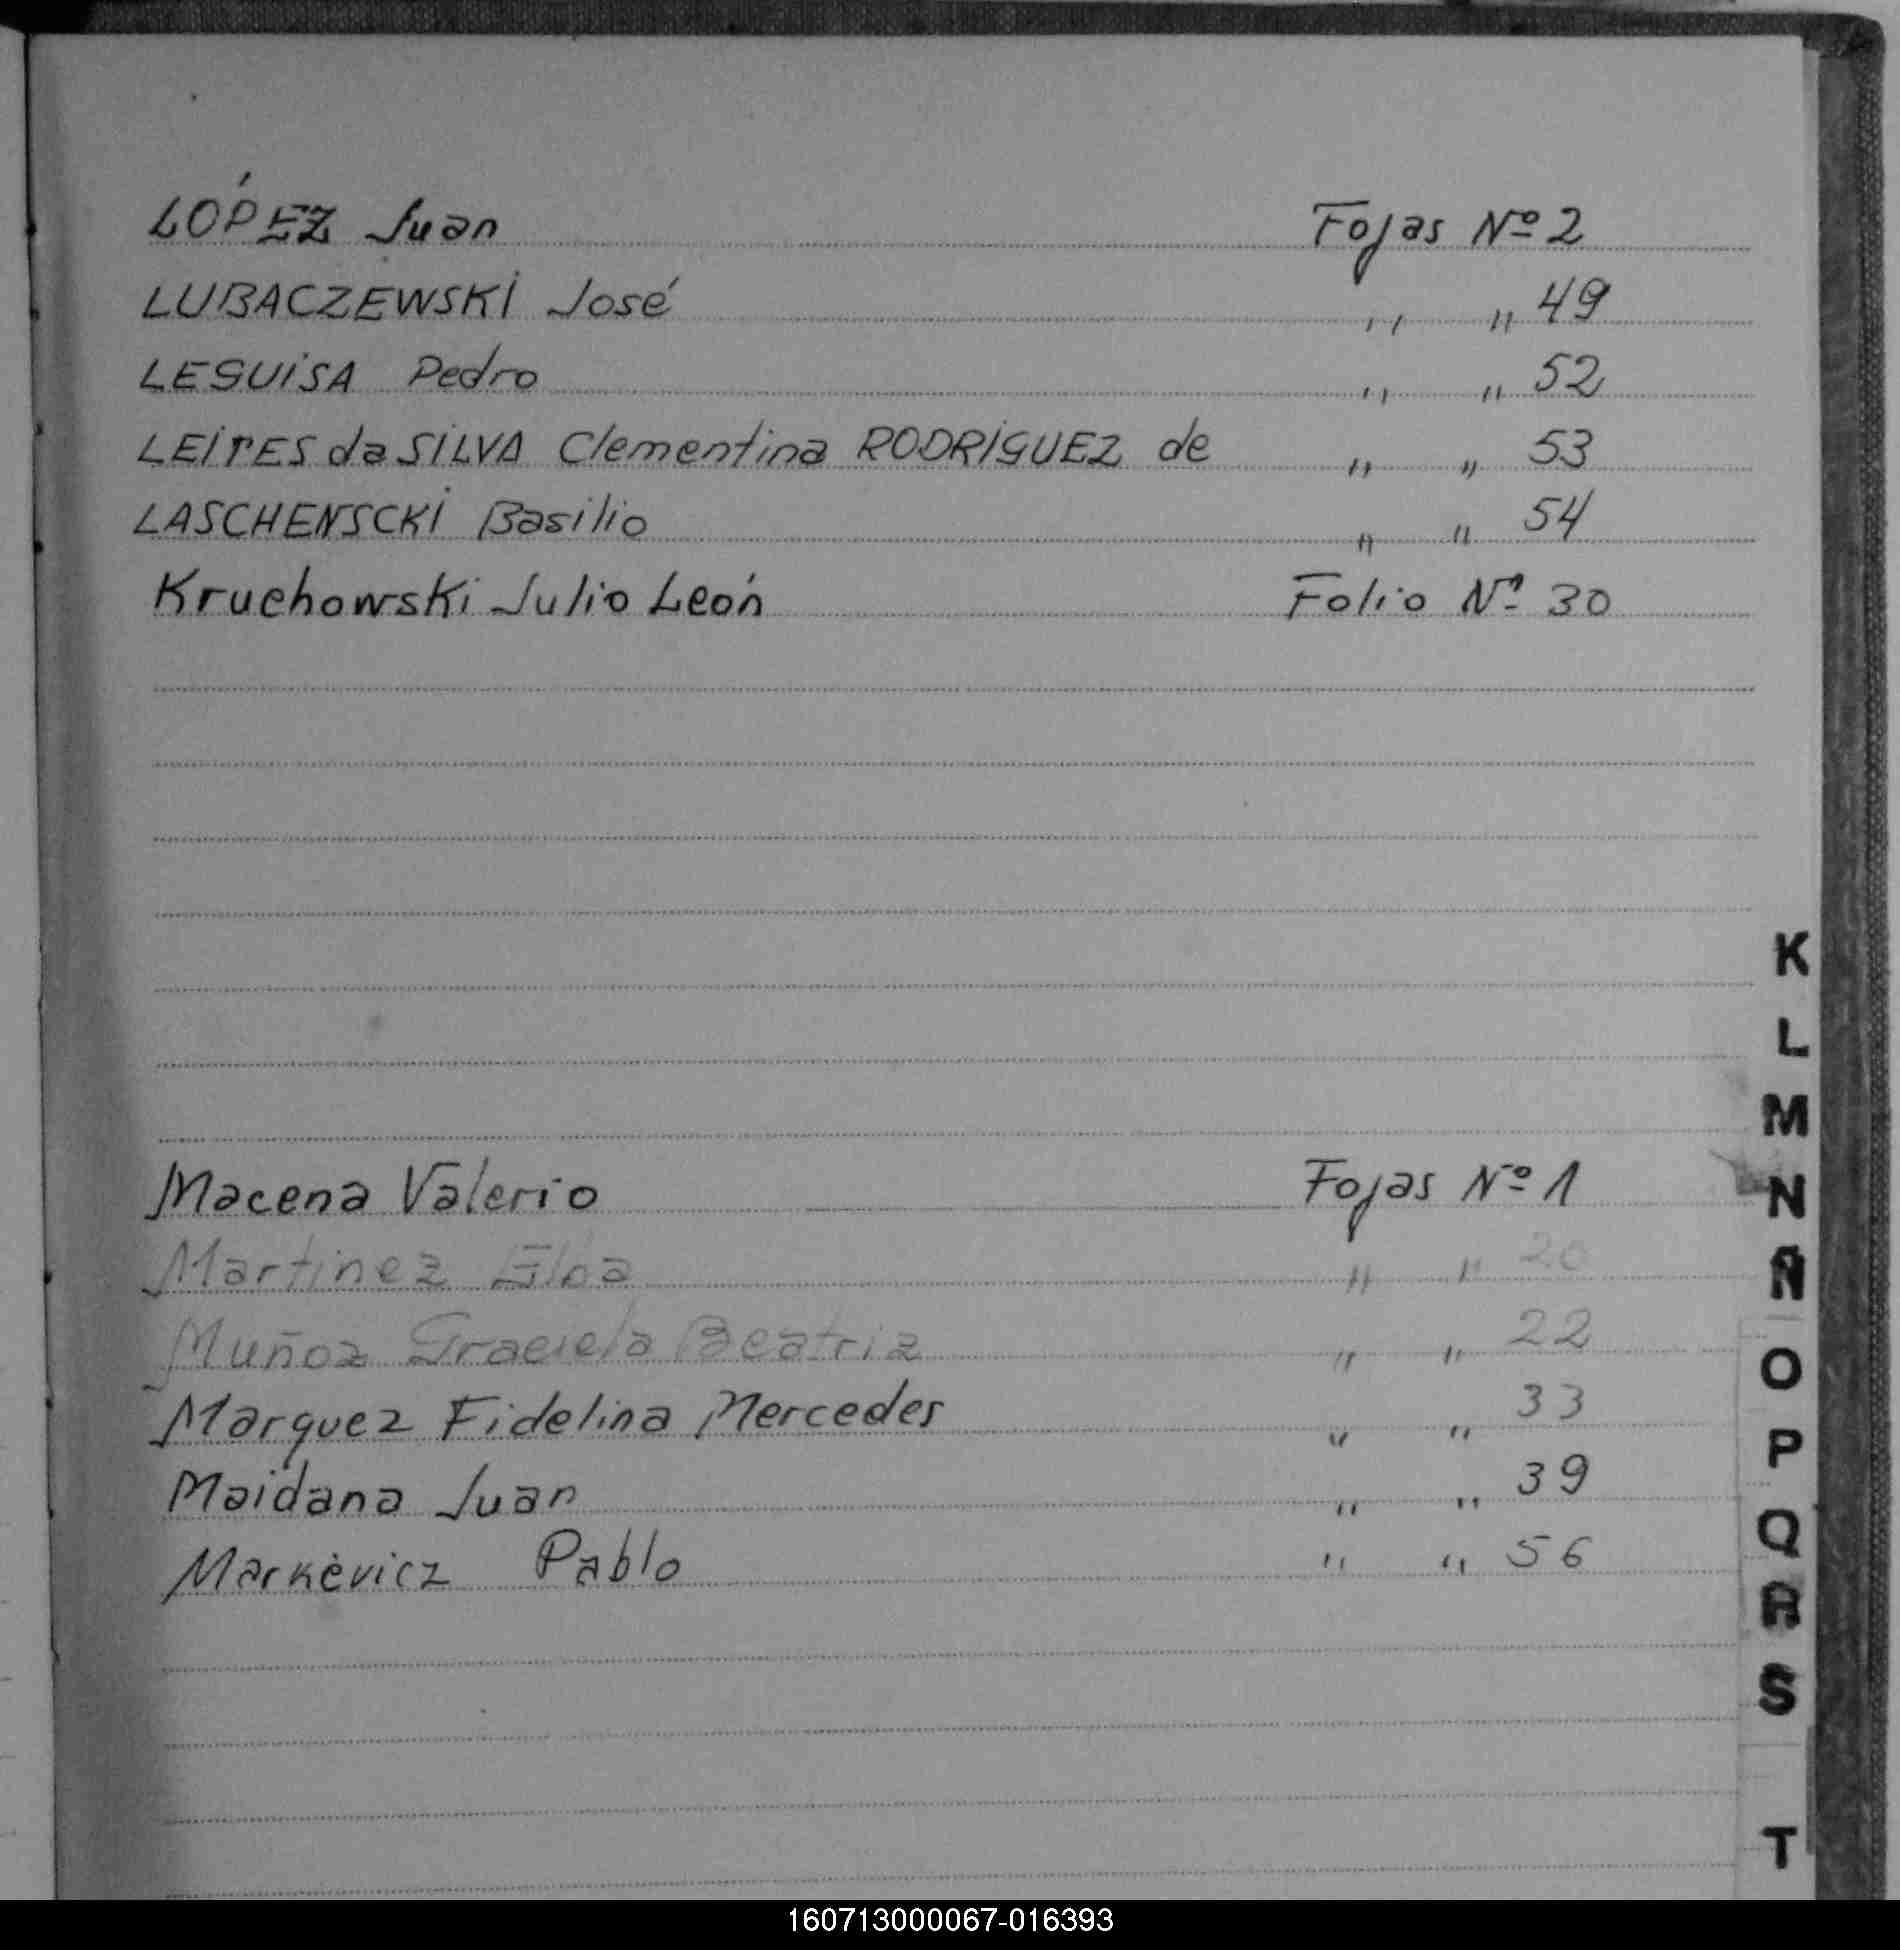 LÓPEZ Juan Fojas Nº 2
LUBACZEWSKI José " " 49
LEGUISA Pedro " " 52
LEITES da SILVA Clementina RODRIGUEZ de " " 53
LASCHENSCKI Basilio " " 54
Kruchowski Julio León Folio Nº 30
K
L
M
Macena Valerio Fojas Nº 1
N
Martinez Elba " " 20
Ñ
Muñoz Graciela Beatriz " " 22
O
Marquez Fidelina Mercedes " " 33
P
Maidana Juan " " 39
Q
Markèvicz Pablo " " 56
R
S
T
160713000067-016393